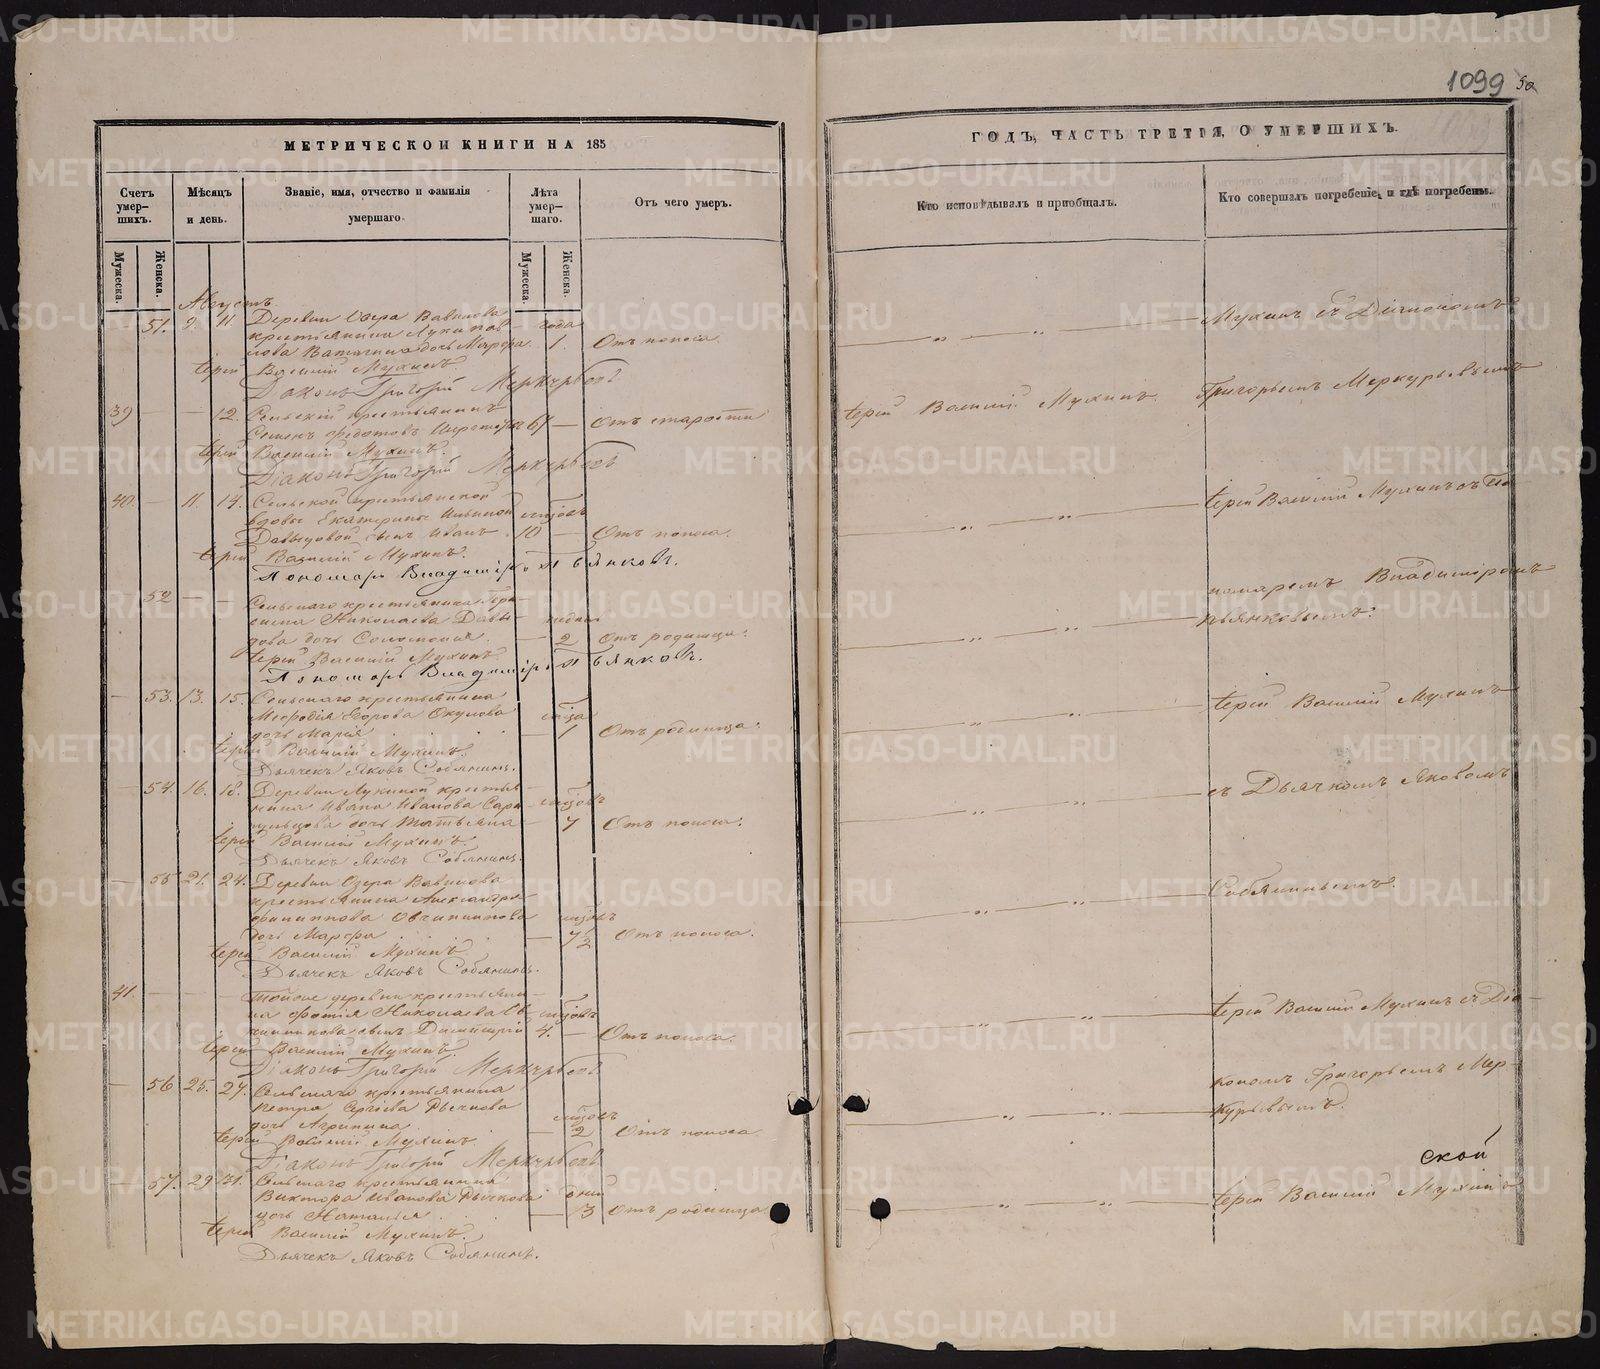 1099 50
МЕТРИЧЕСКОИ КНИГИ НА 185
ГОДЪ, ЧАСТЬ ТРЕТІЯ, О УМЕРШИХЪ.
Счетъ умер-шихъ.
Мѣсяцъ и день.
Званіе, имя, отчество и фамилія умершаго.
Лѣта умер-шаго.
Отъ чего умеръ.
Кто исповѣдывалъ и пріобщалъ.
Кто совершалъ погребеніе, и гдѣ погребены.
Мужеска.
Женска.
Мужеска.
Женска.
Августъ
51. 9. 11. Деревни Озера Вавилова
крестьянина
дочь Марѳа года 1. Отъ поноса
Іерей Василій Мухинъ.
Діаконъ Григорій Меркурьевъ
39 — — 12. Сельскій крестьянинъ
Семенъ Ѳедотовъ 67 — Отъ старости
Іерей Василій Мухинъ.
Діаконъ Григорій Меркурьевъ
40. — 11. 14. Сельской крестьянской
вдовы Екатерины
Давыдовой сынъ Иванъ 10 — Отъ поноса.
Іерей Василій Мухинъ.
Пономарь Владиміръ Пьянковъ.
52 — — Сельскаго крестьянина
Николаева Давы-
дова дочь Соломонія — 2 Отъ родимца.
Іерей Василій Мухинъ
Пономарь Владиміръ Пьянковъ.
— 53. 13. 15. Сельскаго крестьянина
Меѳодія Егорова Окулова
дочь Марія — 1 Отъ родимца.
Іерей Василій Мухинъ.
Дьячекъ Яковъ Собянинъ.
— 54. 16. 18. Деревни Лукиной крестья-
нина Ивана Иванова Сара-
пульцова дочь Татьяна — 7 Отъ поноса.
Іерей Василій Мухинъ.
Дьячекъ Яковъ Собянинъ.
— 55 21. 24. Деревни Озера Вавилова
крестьянина Александра
Филиппова Овчинникова
дочь Марѳа — Отъ поноса.
Іерей Василій Мухинъ
Дьячекъ Яковъ Собянинъ.
41. — — — Тойже деревни крестьяни-
на Фотія Николаева Ов-
чинникова сынъ Димитрій 4. — Отъ поноса.
Іерей Василій Мухинъ.
Діаконъ Григорій Меркурьевъ
— 56 25. 27. Сельскаго крестьянина
Петра Сергіева Рычкова
дочь Агрипина — 2 Отъ поноса
Іерей Василій Мухинъ
Діаконъ Григорій Меркурьевъ
— 57. 29 31. Сельскаго крестьянина
Виктора Иванова Рычкова дней
дочь Наталья — 3 Отъ родимца
Іерей Василій Мухинъ.
Дьячекъ Яковъ Собянинъ.
Мухинъ съ Діакономъ
Іерей Василій Мухинъ. Григорьемъ Меркурьевымъ
Іерей Василій Мухинъ съ По
номаремъ Владиміромъ
Пьянковымъ.
Іерей Василій Мухинъ
съ Дьячкомъ Яковомъ
Собянинымъ.
Іерей Василій Мухинъ съ Діа-
кономъ Григорьемъ Мер-
курьевымъ.
ской
Іерей Василій Мухинъ
METRIKI.GASO-URAL.RU